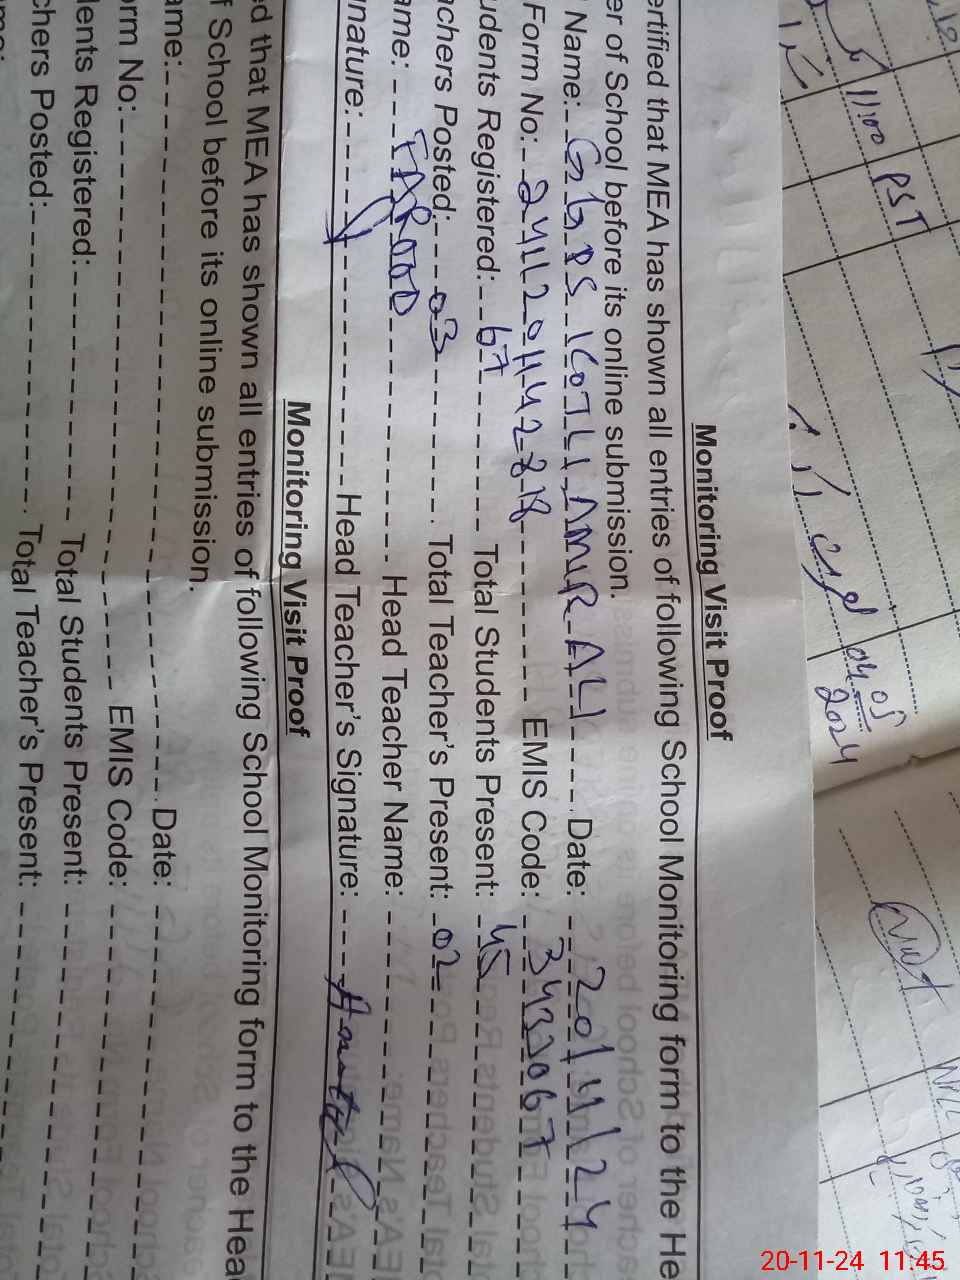 Monitoring Visit Proof
ertified that MEA has shown all entries of following School Monitoring form to the He
er of School before its online submission.
Name: GGPS KOTLI AMIR ALI Date: 20/11/24
Form No: EMIS Code: 3433067
udents Registered: 67 Total Students Present: 45
achers Posted: 03 Total Teacher's Present: 02
ame: FAROOD Head Teacher Name:
nature: Head Teacher's Signature:
Monitoring Visit Proof
ed that MEA has shown all entries of following School Monitoring form to the Hea
f School before its online submission.
ame: Date:
orm No: EMIS Code:
dents Registered: Total Students Present:
chers Posted: Total Teacher's Present:
1100 PST
04 05
2024
20-11-24 11:45